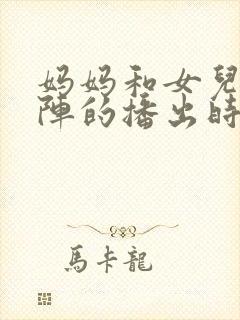 妈妈和女兒
陣的播出時
馬卡龍